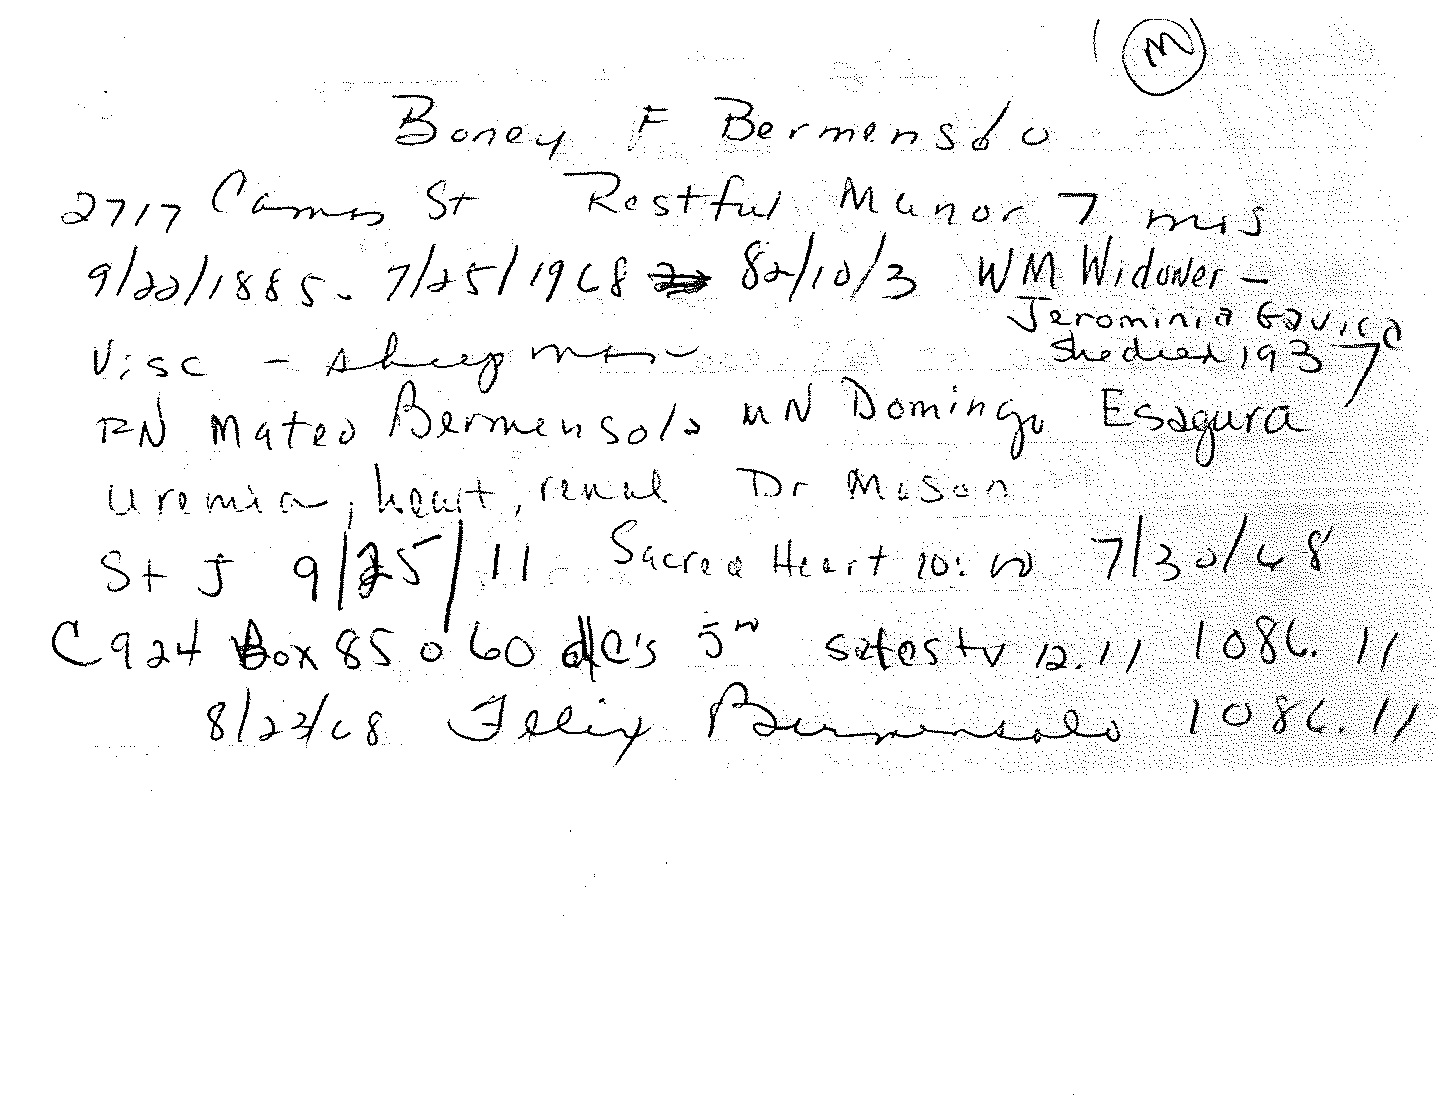 M
Boney F Bermensolo
2717 Camas St Restful Manor 7 mos
9/22/1885 - 7/25/1968 82/10/3 WM Widower -
Jerominia Gavica
She died 1937
Visc - sheep man
FN Mateo Bermensolo MN Domingo Esagura
Uremia, heart, renal Dr Mason
St J 9/25/11 Sacred Heart 10:00 7/30/68
C924 Box 850 60 dc's 5 12.11 1086.11
8/23/68 Felix Bermensolo 1086.11